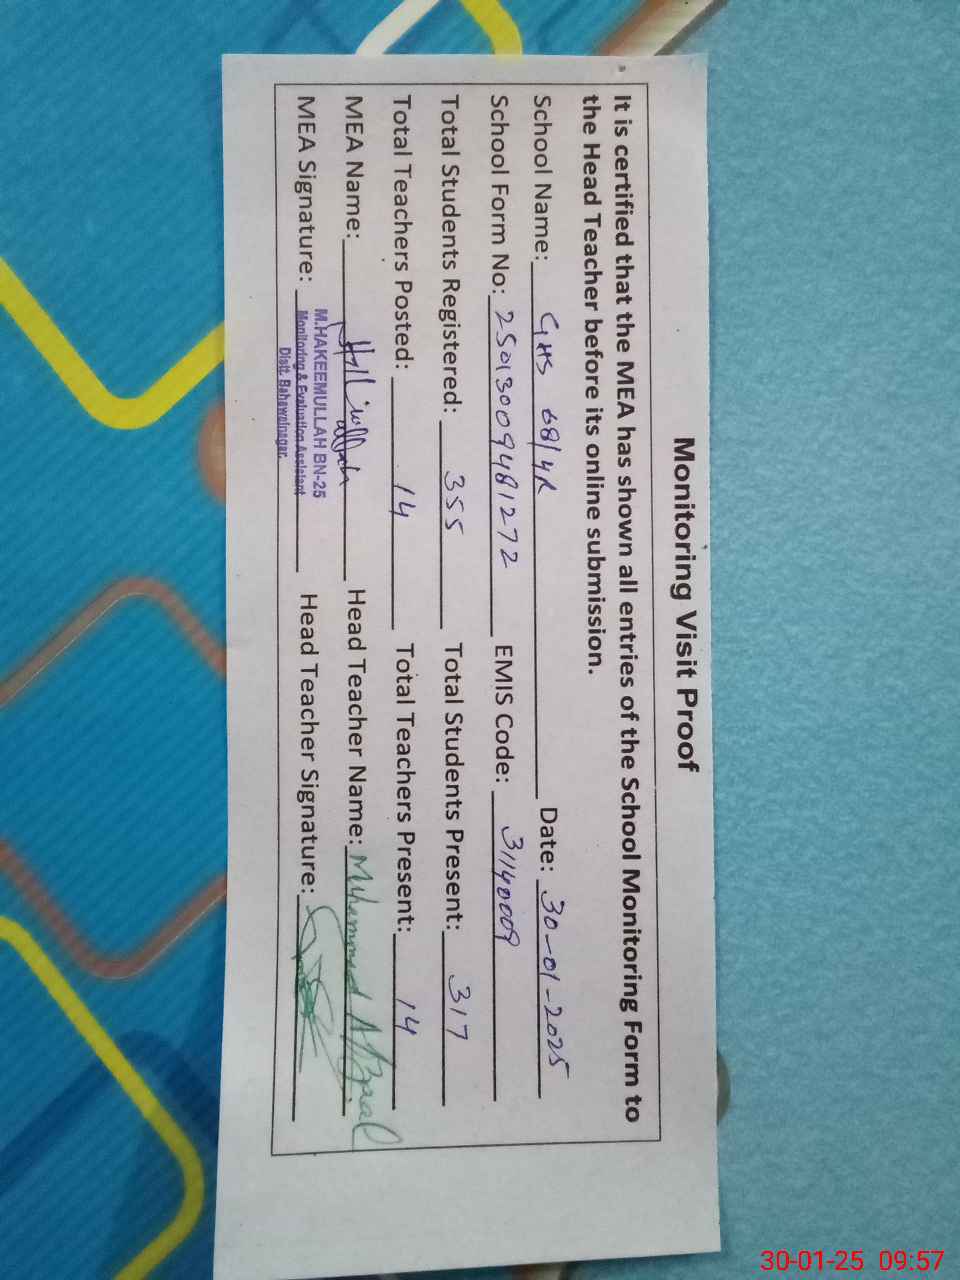 Monitoring Visit Proof
It is certified that the MEA has shown all entries of the School Monitoring Form to
the Head Teacher before its online submission.
School Name: GHS 68/4R Date: 30-01-2025
School Form No: 25013009481272 EMIS Code: 31140009
Total Students Registered: 355 Total Students Present: 317
Total Teachers Posted: 14 Total Teachers Present: 14
MEA Name: Head Teacher Name: Muhammad Afzaal
MEA Signature: Head Teacher Signature:
M.HAKEEMULLAH BN-25
Monitoring & Evaluation Assistant
Distt. Bahawalnagar.
30-01-25 09:57